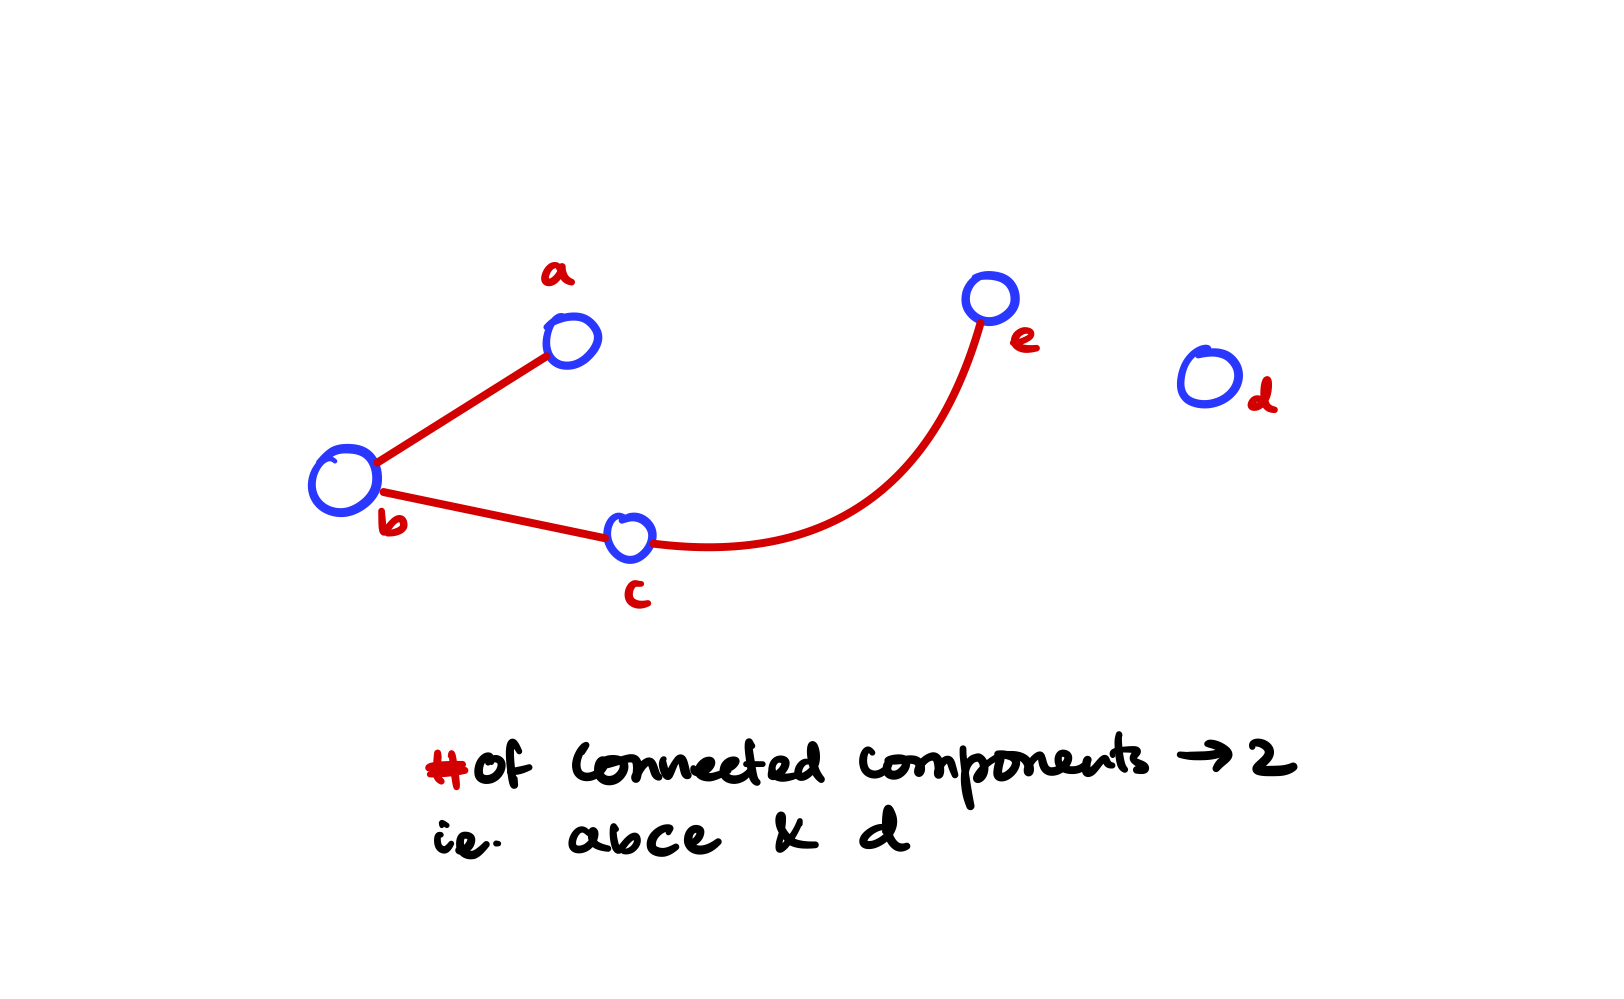 a
e
d
b
c
# of connected components → 2
ie. abce & d